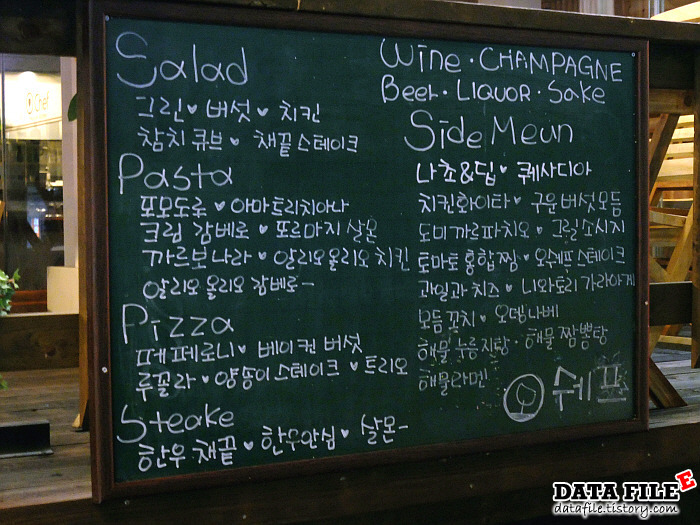 Salad
그린 ♥ 버섯 ♥ 치킨
참치 큐브 ♥ 채끝 스테이크
Pasta
뽀모도루 ♥ 아마트리치아나
크림 감베로 ♥ 또르마지 살몬
까르보나라 ♥ 알리오올리오 치킨
알리오 올리오 감베로~
Pizza
페페로니 ♥ 베이컨 버섯
루꼴라 ♥ 양뜽이 스테이크 ♥ 트리오
Steake
한우 채끝 ♥ 한우안심 ♥ 살몬~
Wine · CHAMPAGNE
Beer · LIQUOR · Sake
Side Meun
나쵸&딥 ♥ 퀘사디아
치킨화이타 ♥ 구운 버섯모듬
도미 까르파치오 ♥ 그릴 소시지
토마토 홍합찜 ♥ 오쉐프스테이크
과일과 치즈 ♥ 니와토리 가라아게
모듬 꼬치 ♥ 오뎅나베
해물 누룽지탕 · 해물 짬뽕탕
해물라멘
쉐프
Chef
DATA FILE E
datafile.tistory.com